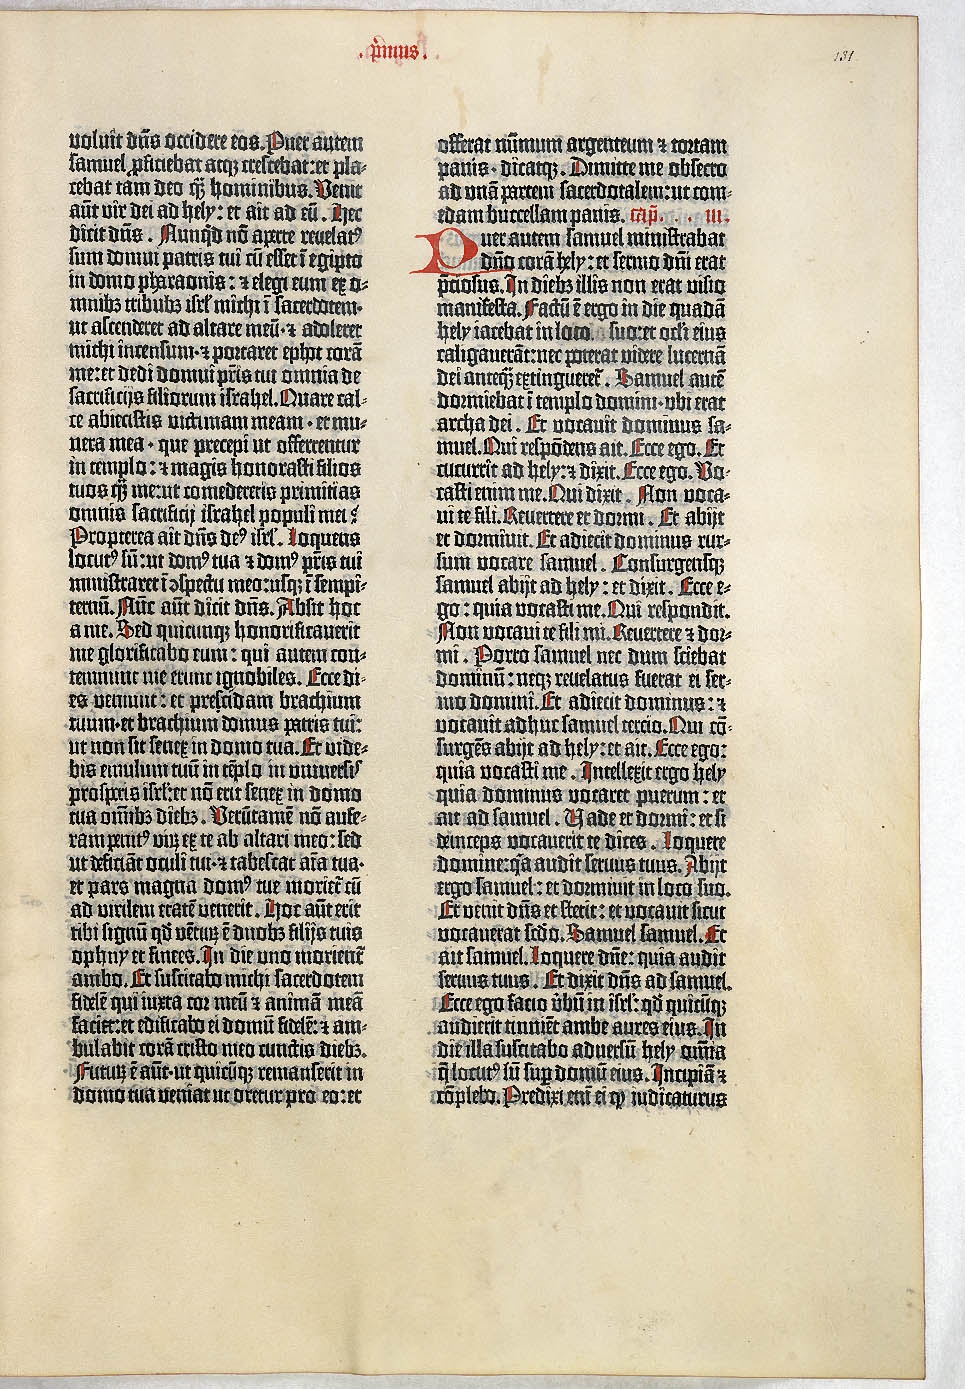 .p̄mus.
131
voluit dn̄s occidere eos. Puer autem
samuel ꝓficiebat atqꝫ crescebat: et pla-
cebat tam deo qͣꝫ hominibus. Venit
aūt vir dei ad hely: et ait ad eū. Hec
dicit dn̄s. Nunqͥd nō aperte revelatꝰ
sum domui patris tui cū esset ī egipto
in domo pharaonis: ⁊ elegi eum ex o-
mnibꝫ tribubꝫ isrl̄ michi ī sacerdotem·
ut ascenderet ad altare meū· ⁊ adoleret
michi incensum· ⁊ portaret ephot corā
me: et dedi domui pr̄is tui omnia de
sacrificijs filiorum israhel. Quare cal-
ce abiecistis victimam meam· et mu-
nera mea· que precepi ut offerrentur
in templo: ⁊ magis honorasti filios
tuos qͣꝫ me: ut comederetis primitias
omnis sacrificij israhel populi mei?
Propterea ait dn̄s deꝰ isrl̄. Loquens
locutꝰ sū: ut domꝰ tua ⁊ domꝰ pr̄is tui
ministraret ī ↄspectu meo: usqꝫ ī sempi-
ternū. Nūc aūt dicit dn̄s. Absit hoc
a me. Sed quicunqꝫ honorificaverit
me glorificabo eum: qui autem con-
temnunt me erunt ignobiles. Ecce di-
es veniunt: et prescidam brachium
tuum· et brachium domus patris tui:
ut non sit senex in domo tua. Et vide-
bis emulum tuū in tēplo in universꝭ
prosperis isrl̄: et nō erit senex in domo
tua omībꝫ diebꝫ. Verūtamē nō aufe-
ram penitꝰ virꝫ ex te ab altari meo: sed
ut deficiāt oculi tui· ⁊ tabescat aīa tua·
et pars magna domꝰ tue morieť cū
ad virilem etatē venerit. Hoc aūt erit
tibi signū qd̄ vēturꝫ ē duobꝫ filijs tuis
ophny et finees. In die uno morienť
ambo. Et suscitabo michi sacerdotem
fidelē qui iuxta cor meū ⁊ animā meā
faciet: et edificabo ei domū fidelē: ⁊ am-
bulabit corā cristo meo cunctis diebꝫ.
Futurꝫ ē aūt· ut quicūqꝫ remanserit in
domo tua veniat ut oretur pro eo: et
offerat nūmum argenteum ⁊ tortam
panis· dicatqꝫ. Dimitte me obsecro
ad unā partem sacerdotalem: ut com-
edam buccellam panis. cap̄. . . iii.
Puer autem samuel ministrabat
dn̄o corā hely: et sermo dn̄i erat
p̄ciosus. In diebꝫ illis non erat visio
manifesta. Factū ē ergo in die quadā
hely iacebat in loco suo: et oc̄li eius
caligaverāt: nec poterat videre lucernā
dei anteqͣꝫ extingueretˉ. Samuel autē
dormiebat ī templo domini· ubi erat
archa dei. Et vocavit dominus sa-
muel. Qui respōdens ait. Ecce ego. Et
cucurrit ad hely: ⁊ dixit. Ecce ego. Vo-
casti enim me. Qui dixit. Non voca-
vi te fili. Revertere et dormi. Et abijt
et dormivit. Et adiecit dominus rur-
sum vocare samuel. Consurgensqꝫ
samuel abijt ad hely: et dixit. Ecce e-
go: quia vocasti me. Qui respondit.
Non vocavi te fili mi. Revertere ⁊ dor-
mi. Porro samuel nec dum sciebat
dominū: neqꝫ revelatus fuerat ei ser-
mo domini. Et adiecit dominus: ⁊
vocavit adhuc samuel tercio. Qui cō-
surgēs abijt ad hely: et ait. Ecce ego:
quia vocasti me. Intellexit ergo hely
quia dominus vocaret puerum: et
ait ad samuel. Vade et dormi: et si
deinceps vocaverit te dices. Loquere
domine: qͥa audit servus tuus. Abijt
ergo samuel: et dormivit in loco suo.
Et venit dn̄s et stetit: et vocavit sicut
vocaverat sc̄do. Samuel samuel. Et
ait samuel. Loquere dn̄e: quia audit
servus tuus. Et dixit dn̄s ad samuel.
Ecce ego facio v̄bū in isrl̄: qd̄ quicūqꝫ
audierit tinniēt ambe aures eius. In
die illa suscitabo adversū hely omīa
q̄ locutꝰ sū suꝑ domū eius. Incipiā ⁊
cōplebo. Predixi eni ei ꝙ iudicaturus